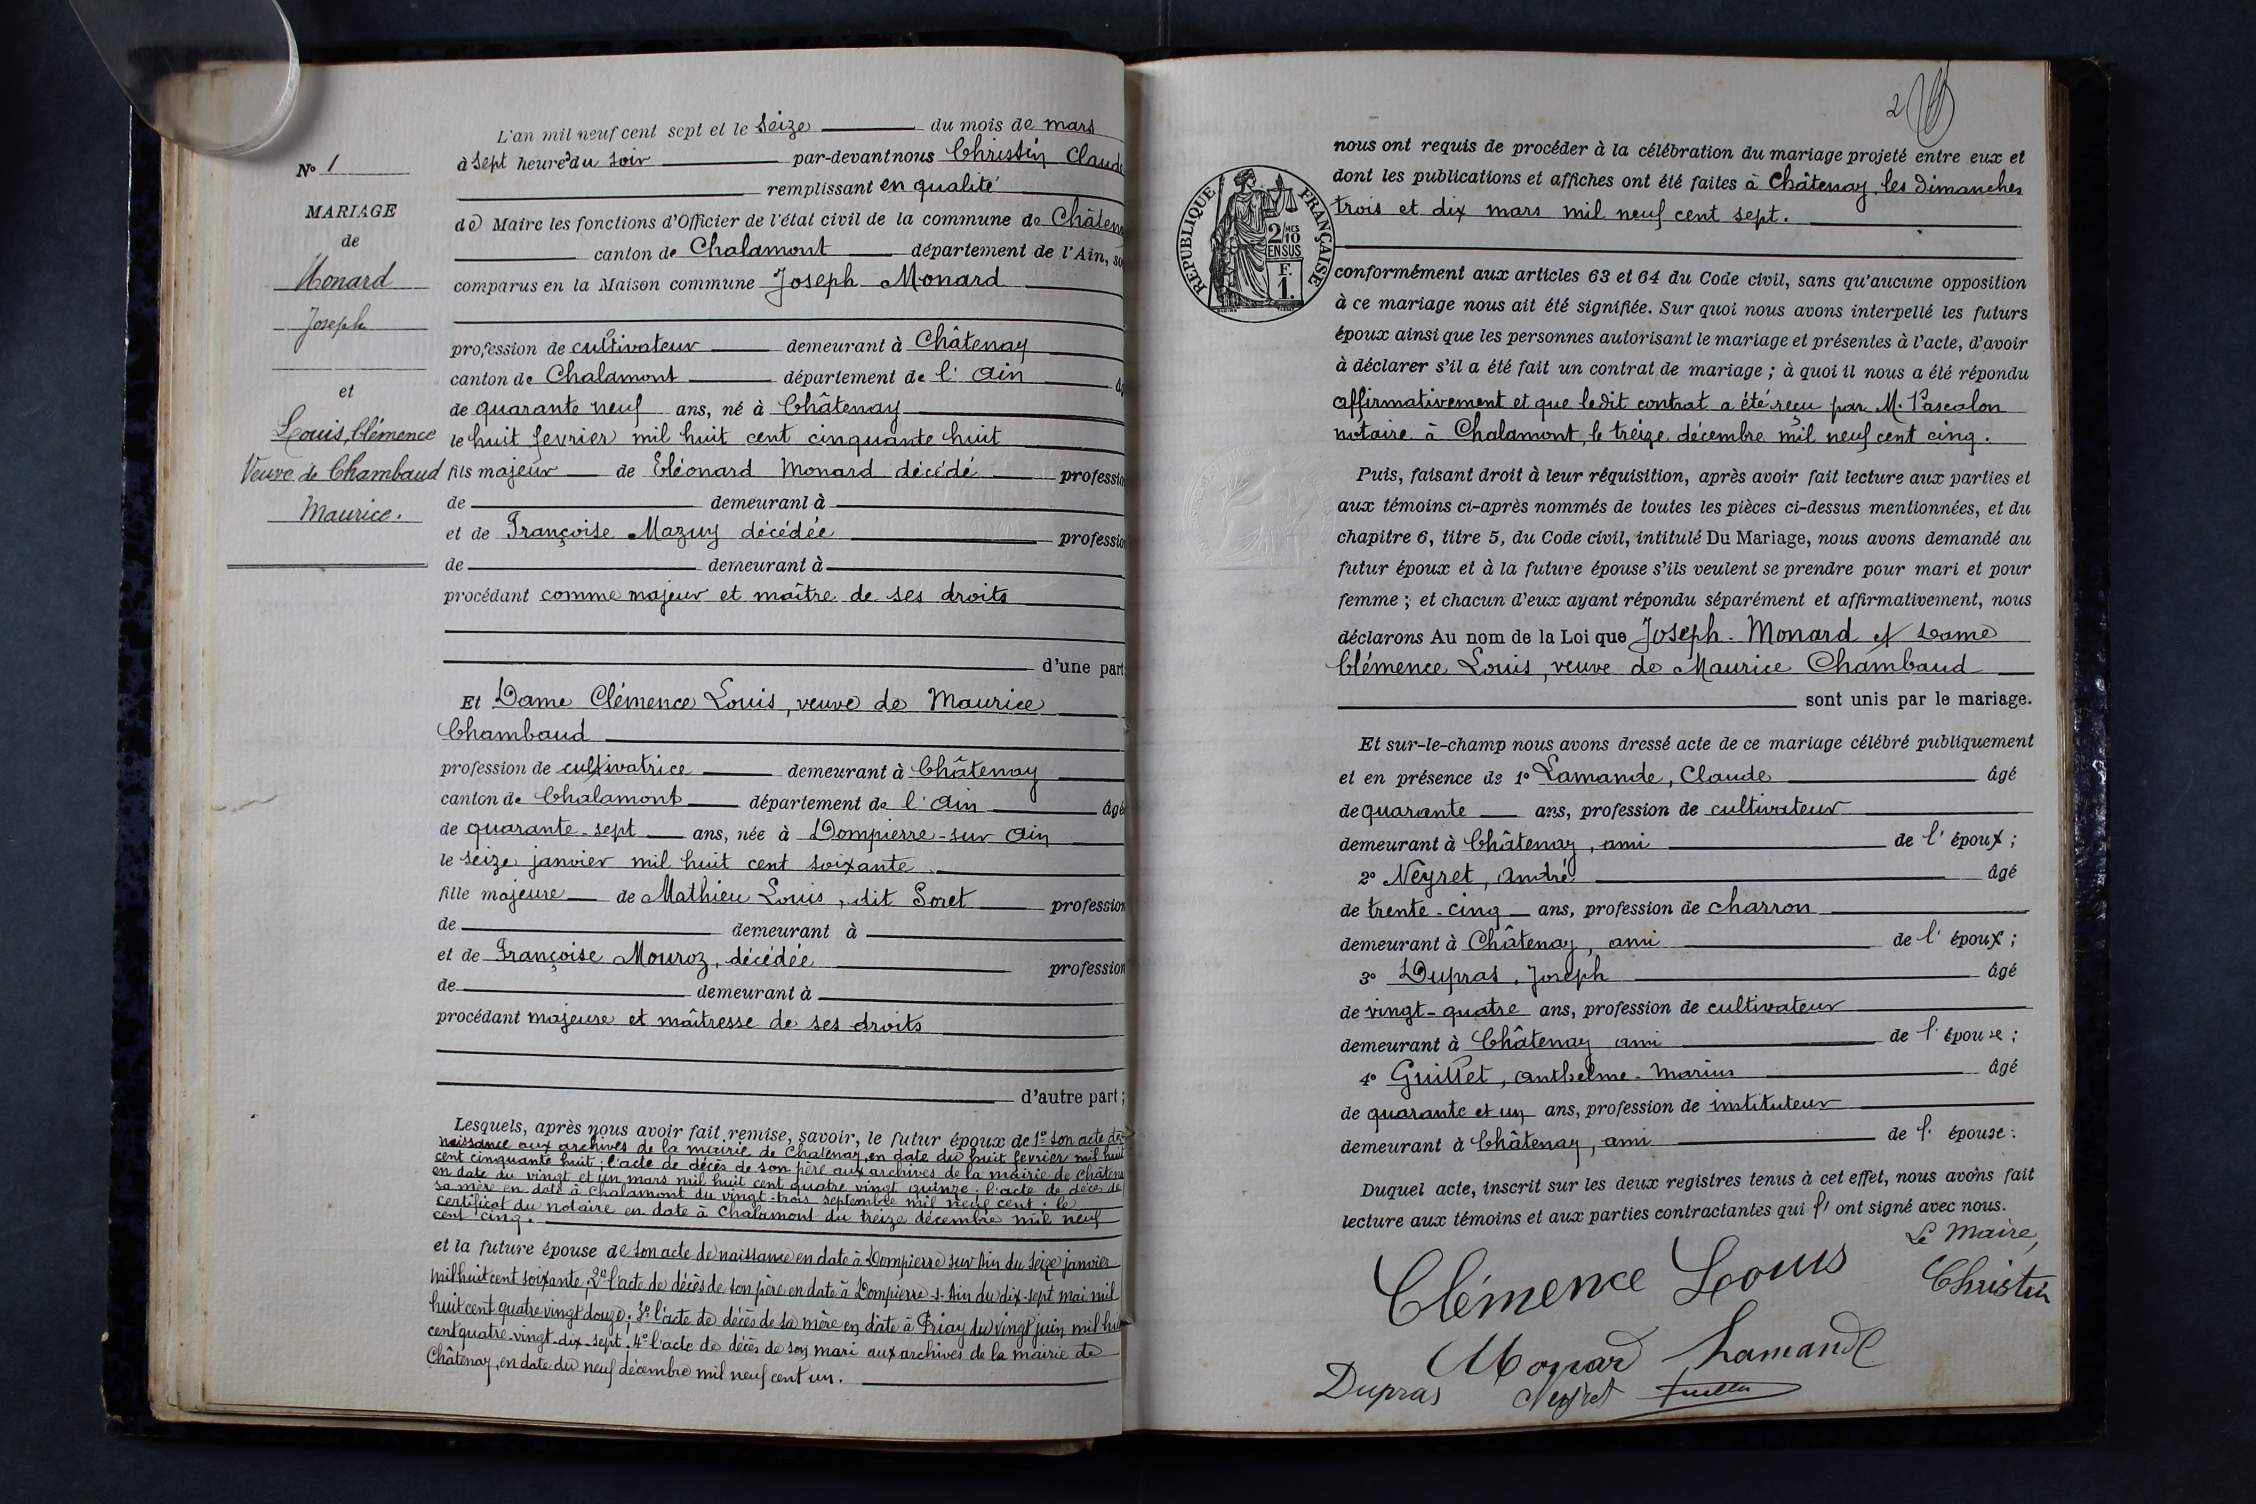 N° 1
MARIAGE
de
Monard
Joseph
et
Louis, Clémence
Veuve de Chambaud
Maurice.
L'an mil neuf cent sept et le seize du mois de mars
à sept heures du soir par-devant nous Christin Claude
remplissant en qualité
de Maire les fonctions d'Officier de l'état civil de la commune de Châtena
canton de Chalamont département de l'Ain, so
comparus en la Maison commune Joseph Monard
profession de cultivateur demeurant à Châtenay
canton de Chalamont département de l'Ain âg
de quarante neuf ans, né à Châtenay
le huit fevrier mil huit cent cinquante huit
fils majeur de Eléonard Monard décédé professio
de demeurant à
et de Françoise Mazuy décédée professio
de demeurant à
procédant comme majeur et maître de ses droits
d'une part
Et Dame Clémence Louis, veuve de Maurice
Chambaud
profession de cultivatrice demeurant à Châtenay
canton de Chalamont département de l'Ain âgé
de quarante-sept ans, née à Dompierre-sur Ain
le seize janvier mil huit cent soixante
fille majeure de Mathieu Louis, dit Soret profession
de demeurant à
et de Françoise Mouroz, décédée profession
de demeurant à
procédant majeure et maîtresse de ses droits
d'autre part ;
Lesquels, après nous avoir fait remise, savoir, le futur époux de 1° son acte de
naissance aux archives de la mairie de Chatenay, en date du huit fevrier mil huit
cent cinquante huit ; l'acte de décès de son père aux archives de la mairie de Châtena
en date du vingt et un mars mil huit cent quatre vingt quinze ; l'acte de décès de
sa mère en date à Chalamont du vingt-trois septembre mil neuf cent ; le
certificat du notaire en date à Chalamont du treize décembre mil neuf
cent cinq.
et la future épouse de son acte de naissance en date à Dompierre sur Ain du seize janvier
mil huit cent soixante, 2° l'acte de décès de son père en date à Dompierre-s-Ain du dix-sept mai mil
huit cent quatre vingt douze ; 3° l'acte de décès de sa mère en date à Priay du vingt juin mil hui
cent quatre-vingt-dix-sept ; 4° l'acte de décès de son mari aux archives de la mairie de
Châtenay, en date du neuf décembre mil neuf cent un.
2
RÉPUBLIQUE FRANÇAISE
2/10 EN SUS
F.
1.
nous ont requis de procéder à la célébration du mariage projeté entre eux et
dont les publications et affiches ont été faites à Châtenay, les dimanches
trois et dix mars mil neuf cent sept.
conformément aux articles 63 et 64 du Code civil, sans qu'aucune opposition
à ce mariage nous ait été signifiée. Sur quoi nous avons interpellé les futurs
époux ainsi que les personnes autorisant le mariage et présentes à l'acte, d'avoir
à déclarer s'il a été fait un contrat de mariage ; à quoi il nous a été répondu
affirmativement et que ledit contrat a été reçu par M. Pascalon
notaire à Chalamont, le treize décembre mil neuf cent cinq.
Puis, faisant droit à leur réquisition, après avoir fait lecture aux parties et
aux témoins ci-après nommés de toutes les pièces ci-dessus mentionnées, et du
chapitre 6, titre 5, du Code civil, intitulé Du Mariage, nous avons demandé au
futur époux et à la future épouse s'ils veulent se prendre pour mari et pour
femme ; et chacun d'eux ayant répondu séparément et affirmativement, nous
déclarons Au nom de la Loi que Joseph Monard et Dame
Clémence Louis, veuve de Maurice Chambaud
sont unis par le mariage.
Et sur-le-champ nous avons dressé acte de ce mariage célébré publiquement
et en présence de 1° Lamande, Claude âgé
de quarante ans, profession de cultivateur
demeurant à Châtenay, ami de l'époux ;
2° Neyret, André âgé
de trente-cinq ans, profession de charron
demeurant à Châtenay, ami de l'époux ;
3° Dupras, Joseph âgé
de vingt-quatre ans, profession de cultivateur
demeurant à Châtenay ami de l'épouse ;
4° Guillet, Anthelme-Marius âgé
de quarante et un ans, profession de instituteur
demeurant à Châtenay, ami de l'épouse.
Duquel acte, inscrit sur les deux registres tenus à cet effet, nous avons fait
lecture aux témoins et aux parties contractantes qui l'ont signé avec nous.
Le Maire,
Clémence Louis Christin
Monard Lamande
Dupras Neyret Guillet